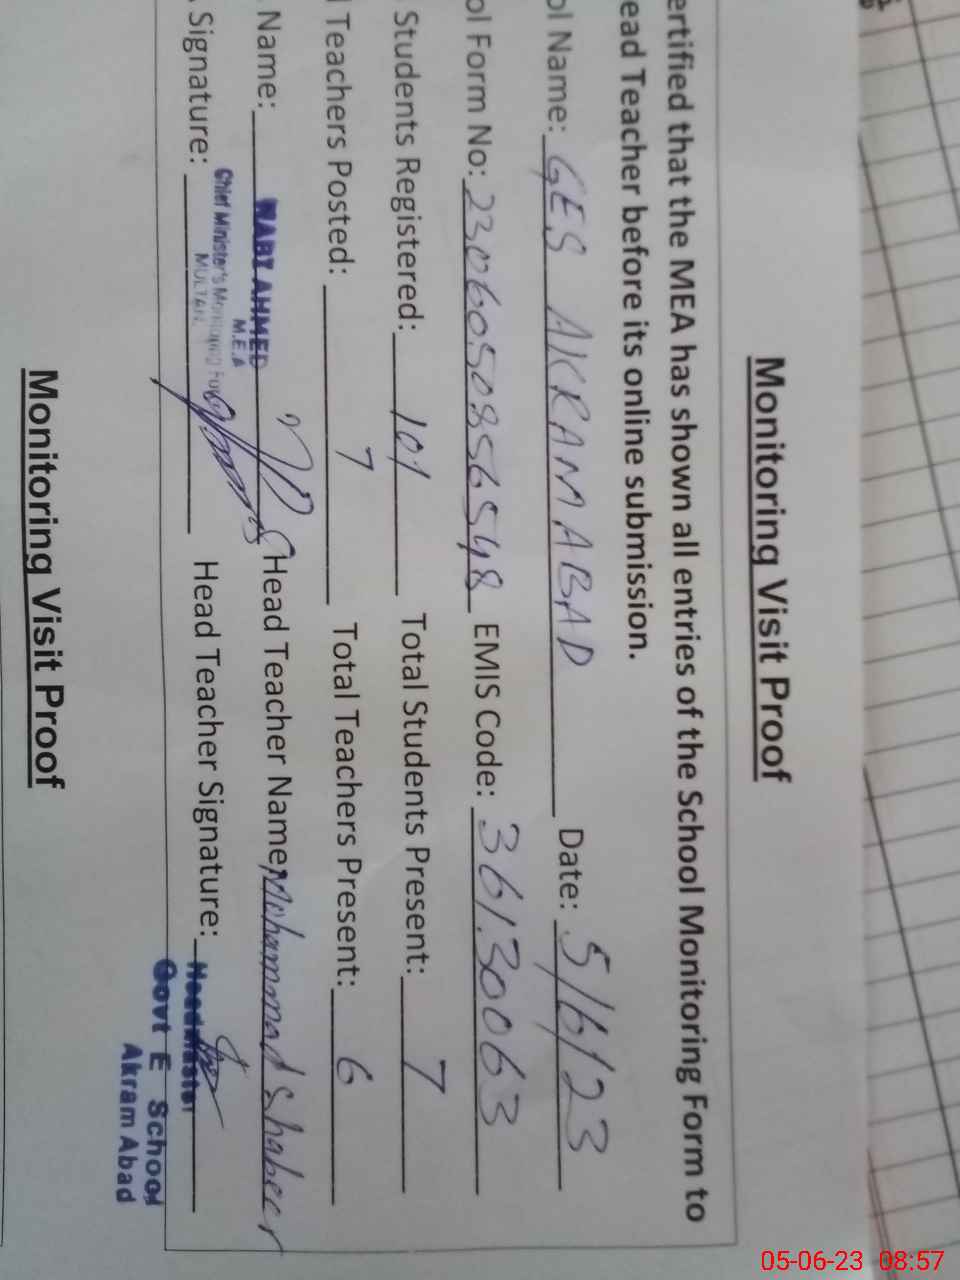 Monitoring Visit Proof
ertified that the MEA has shown all entries of the School Monitoring Form to
ead Teacher before its online submission.
ol Name: GES AKRAMABAD Date: 5/6/23
ol Form No: 23060508565548 EMIS Code: 36130063
Students Registered: 101 Total Students Present: 7
l Teachers Posted: 7 Total Teachers Present: 6
Name: NABY AHMED Head Teacher Name Mohammad Shabeer
M.E.A
Signature: Chief Minister's Monitoring Force Head Teacher Signature: Headmaster
MULTAN
Govt E School
Akram Abad
Monitoring Visit Proof
05-06-23 08:57